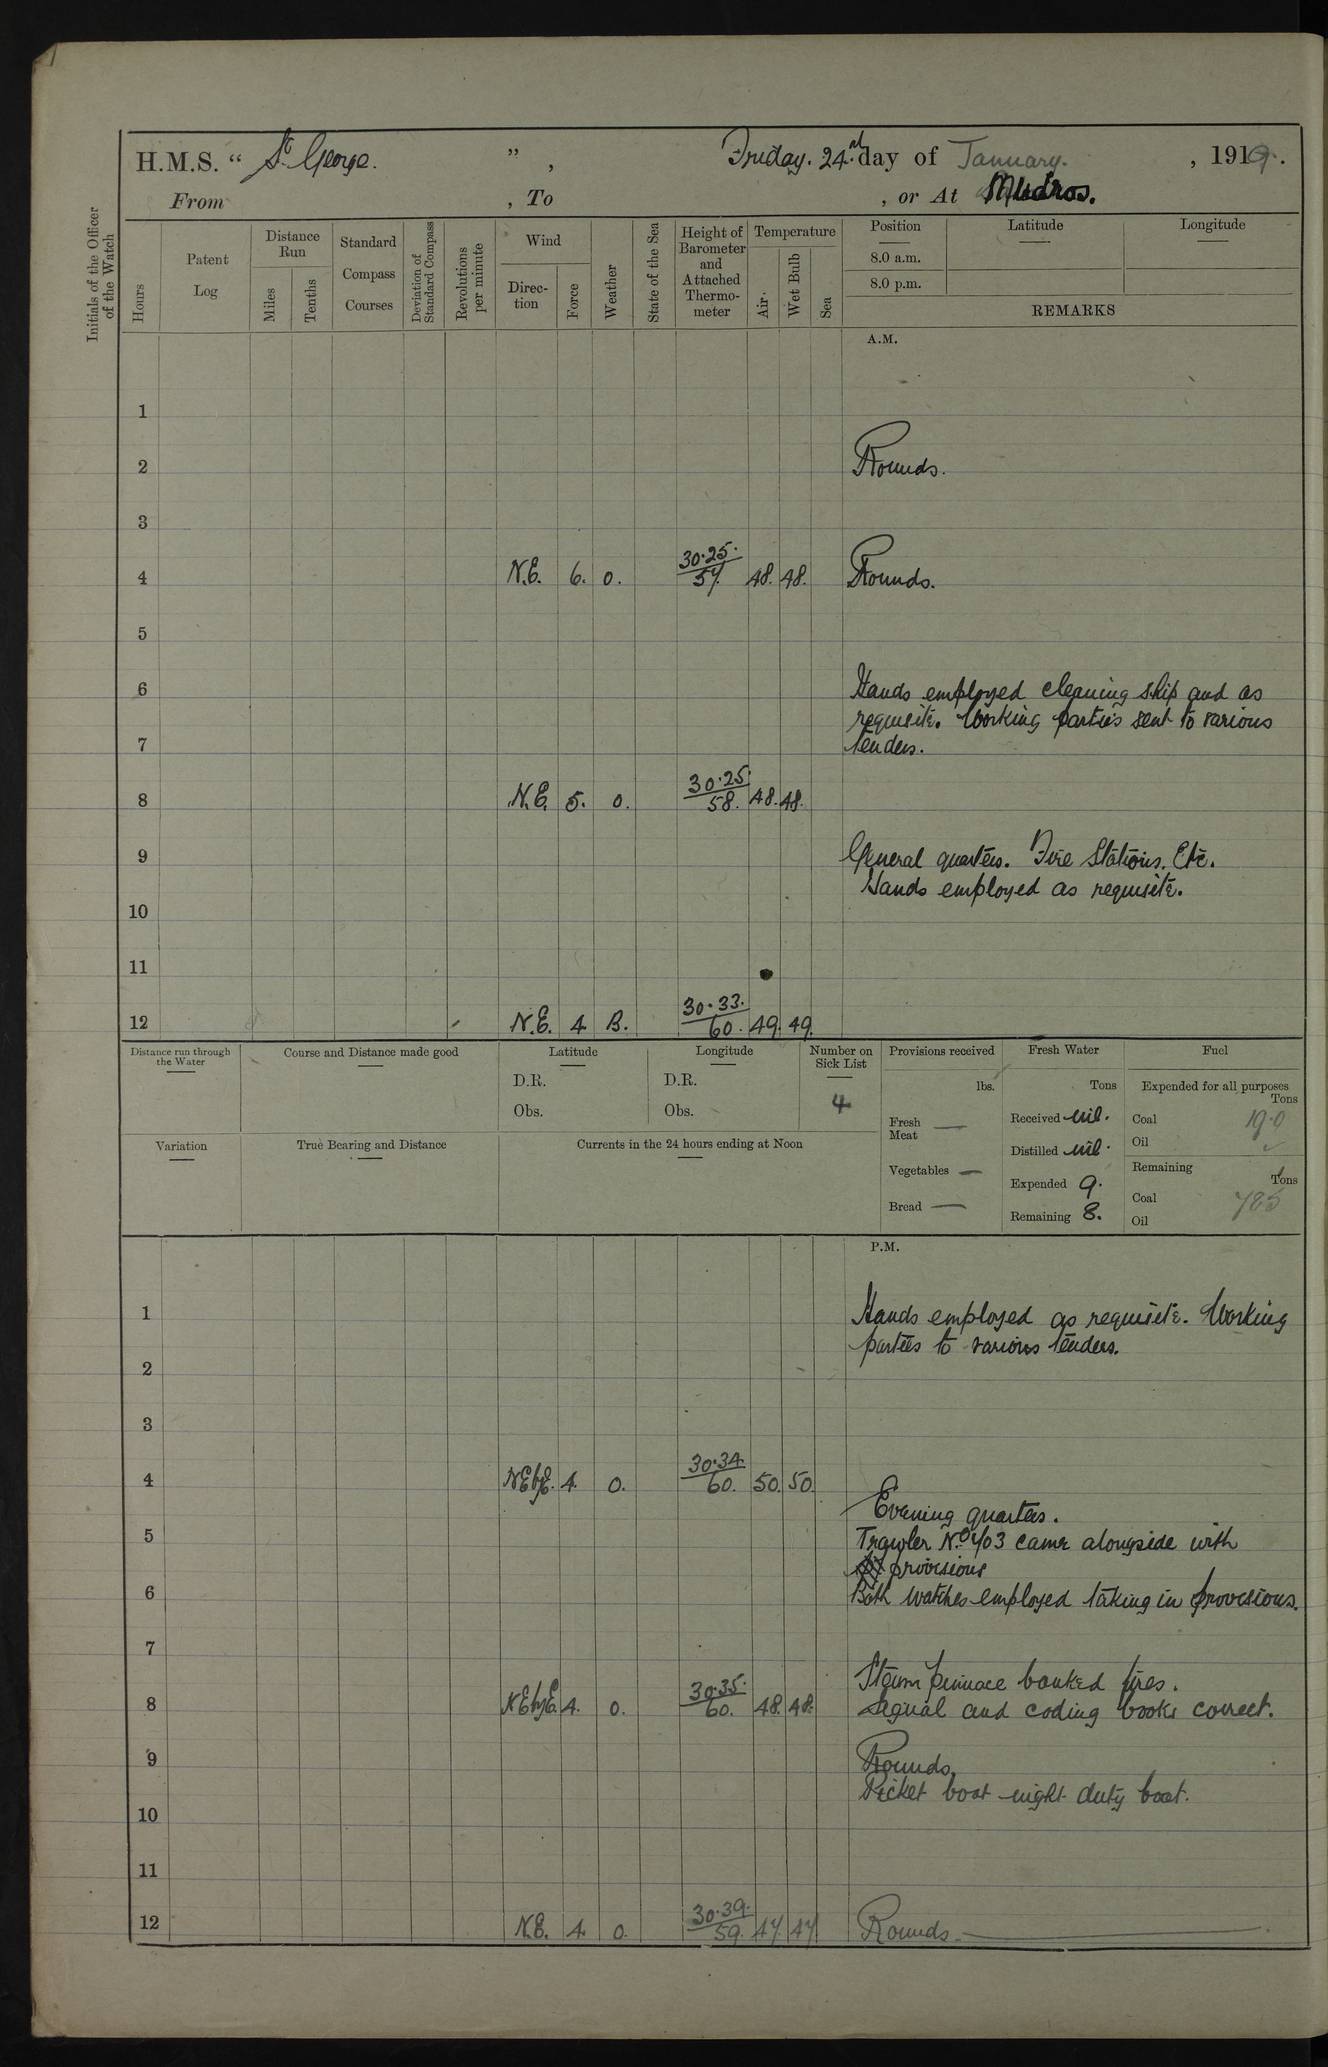 H.M.S. “ St George. ” , Friday. 24.nd day of January. , 1919.
From , To , or At Mudros.
Initials of the Officer
of the Watch
Hours
Patent
Log
Distance
Run
Miles
Tenths
Standard
Compass
Courses
Deviation of
Standard Compass
Revolutions
per minute
Wind
Direc-
tion
Force
Weather
State of the Sea
Height of
Barometer
and
Attached
Thermo-
meter
Temperature
Air
Wet Bulb
Sea
Position
8.0 a.m.
8.0 p.m.
Latitude
Longitude
REMARKS
A.M.
1
2 Rounds.
3
4 N.E. 6. o. 30.25. 57. 48. 48. Rounds.
5
6 Hands employed cleaning ship and as
requisite. Working parties sent to various
7 tenders.
8 N.E. 5. o. 30.25. 58. 48. 48.
9 General quarters. Fire Stations. Etc.
Hands employed as requisite.
10
11
12 N.E. 4 B. 30.33. 60. 49. 49.
Distance run through
the Water
Course and Distance made good
Latitude
D.R.
Obs.
Longitude
D.R.
Obs.
Number on
Sick List
4
Provisions received
lbs.
Fresh
Meat —
Vegetables —
Bread —
Fresh Water
Tons
Received nil.
Distilled nil.
Expended 9.
Remaining 8.
Fuel
Expended for all purposes
Tons
Coal 19.0
Oil
Remaining
Tons
Coal 785
Oil
Variation
True Bearing and Distance
Currents in the 24 hours ending at Noon
P.M.
1 Hands employed as requisite. Working
parties to various tenders.
2
3
4 NEbyE. 4. o. 30.34. 60. 50. 50.
Evening quarters.
5 Trawler No 703 came alongside with
provisions
6 Both watches employed taking in provisions.
7
Steam pinnace banked fires.
8 NEbyE. 4. o. 30.35. 60. 48. 48. Signal and coding books correct.
9 Rounds.
Picket boat night duty boat.
10
11
12 N.E. 4. o. 30.39. 59. 47. 47. Rounds.